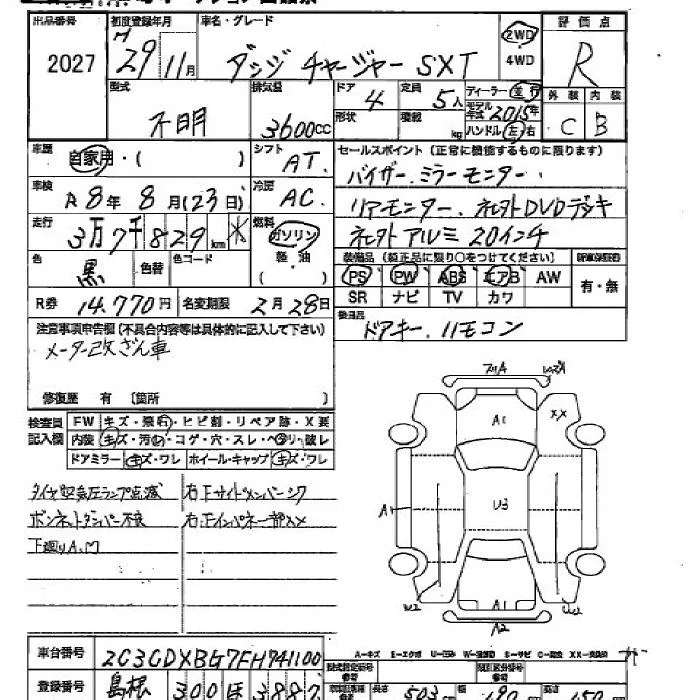 出品番号 初度登録年月 車名・グレード 評価点
2027 H 29年 11月 ダッジ チャージャー SXT 2WD・4WD R
型式 排気量 ドア 定員 ディーラー・並行 外装 内装
不明 3600cc 4 5人 モデル年式 2015年 C B
形状 積載 kg ハンドル 左・右
車歴 自家用・( ) シフト AT. セールスポイント(正常に機能するものに限ります)
車検 R 8年 8月(23日) 冷房 AC. バイザー.ミラーモニター.
リアモニター.社外DVDデッキ
走行 3万7千829km 燃料 ガソリン 軽・油 ( ) 社外アルミ 20インチ
色 黒 色替 色コード 装備品(純正品に限り○をつけてください)
PS PW ABS エアB AW 有・無
SR ナビ TV カワ
R券 14.770円 名変期限 2月28日 後日品 ドアキー.リモコン
注意事項申告欄(不具合内容等は具体的に記入して下さい)
メーター改ざん車
修復歴 有 〔箇所 〕
検査員記入欄 FW キズ・飛石・ヒビ割・リペア跡・X要
内装 キズ・汚れ・コゲ・穴・スレ・ヘタリ・破レ
ドアミラー キズ・ワレ ホイール・キャップ キズ・ワレ
タイヤ空気圧ランプ点滅 右Fサイドメンバーシワ
ボンネットダンパー不良 右Fインパネ一部メメ
下廻りA.M
A1 XX
A1 U3
W2 A1 A2
A=キズ E=エクボ U=凹み W=波 S=サビ C=腐食 XX=交換済
車台番号 2C3CDXBG7FH741100
登録番号 島根 300 ほ 3887 長さ 503cm 幅 190cm 高さ 150cm